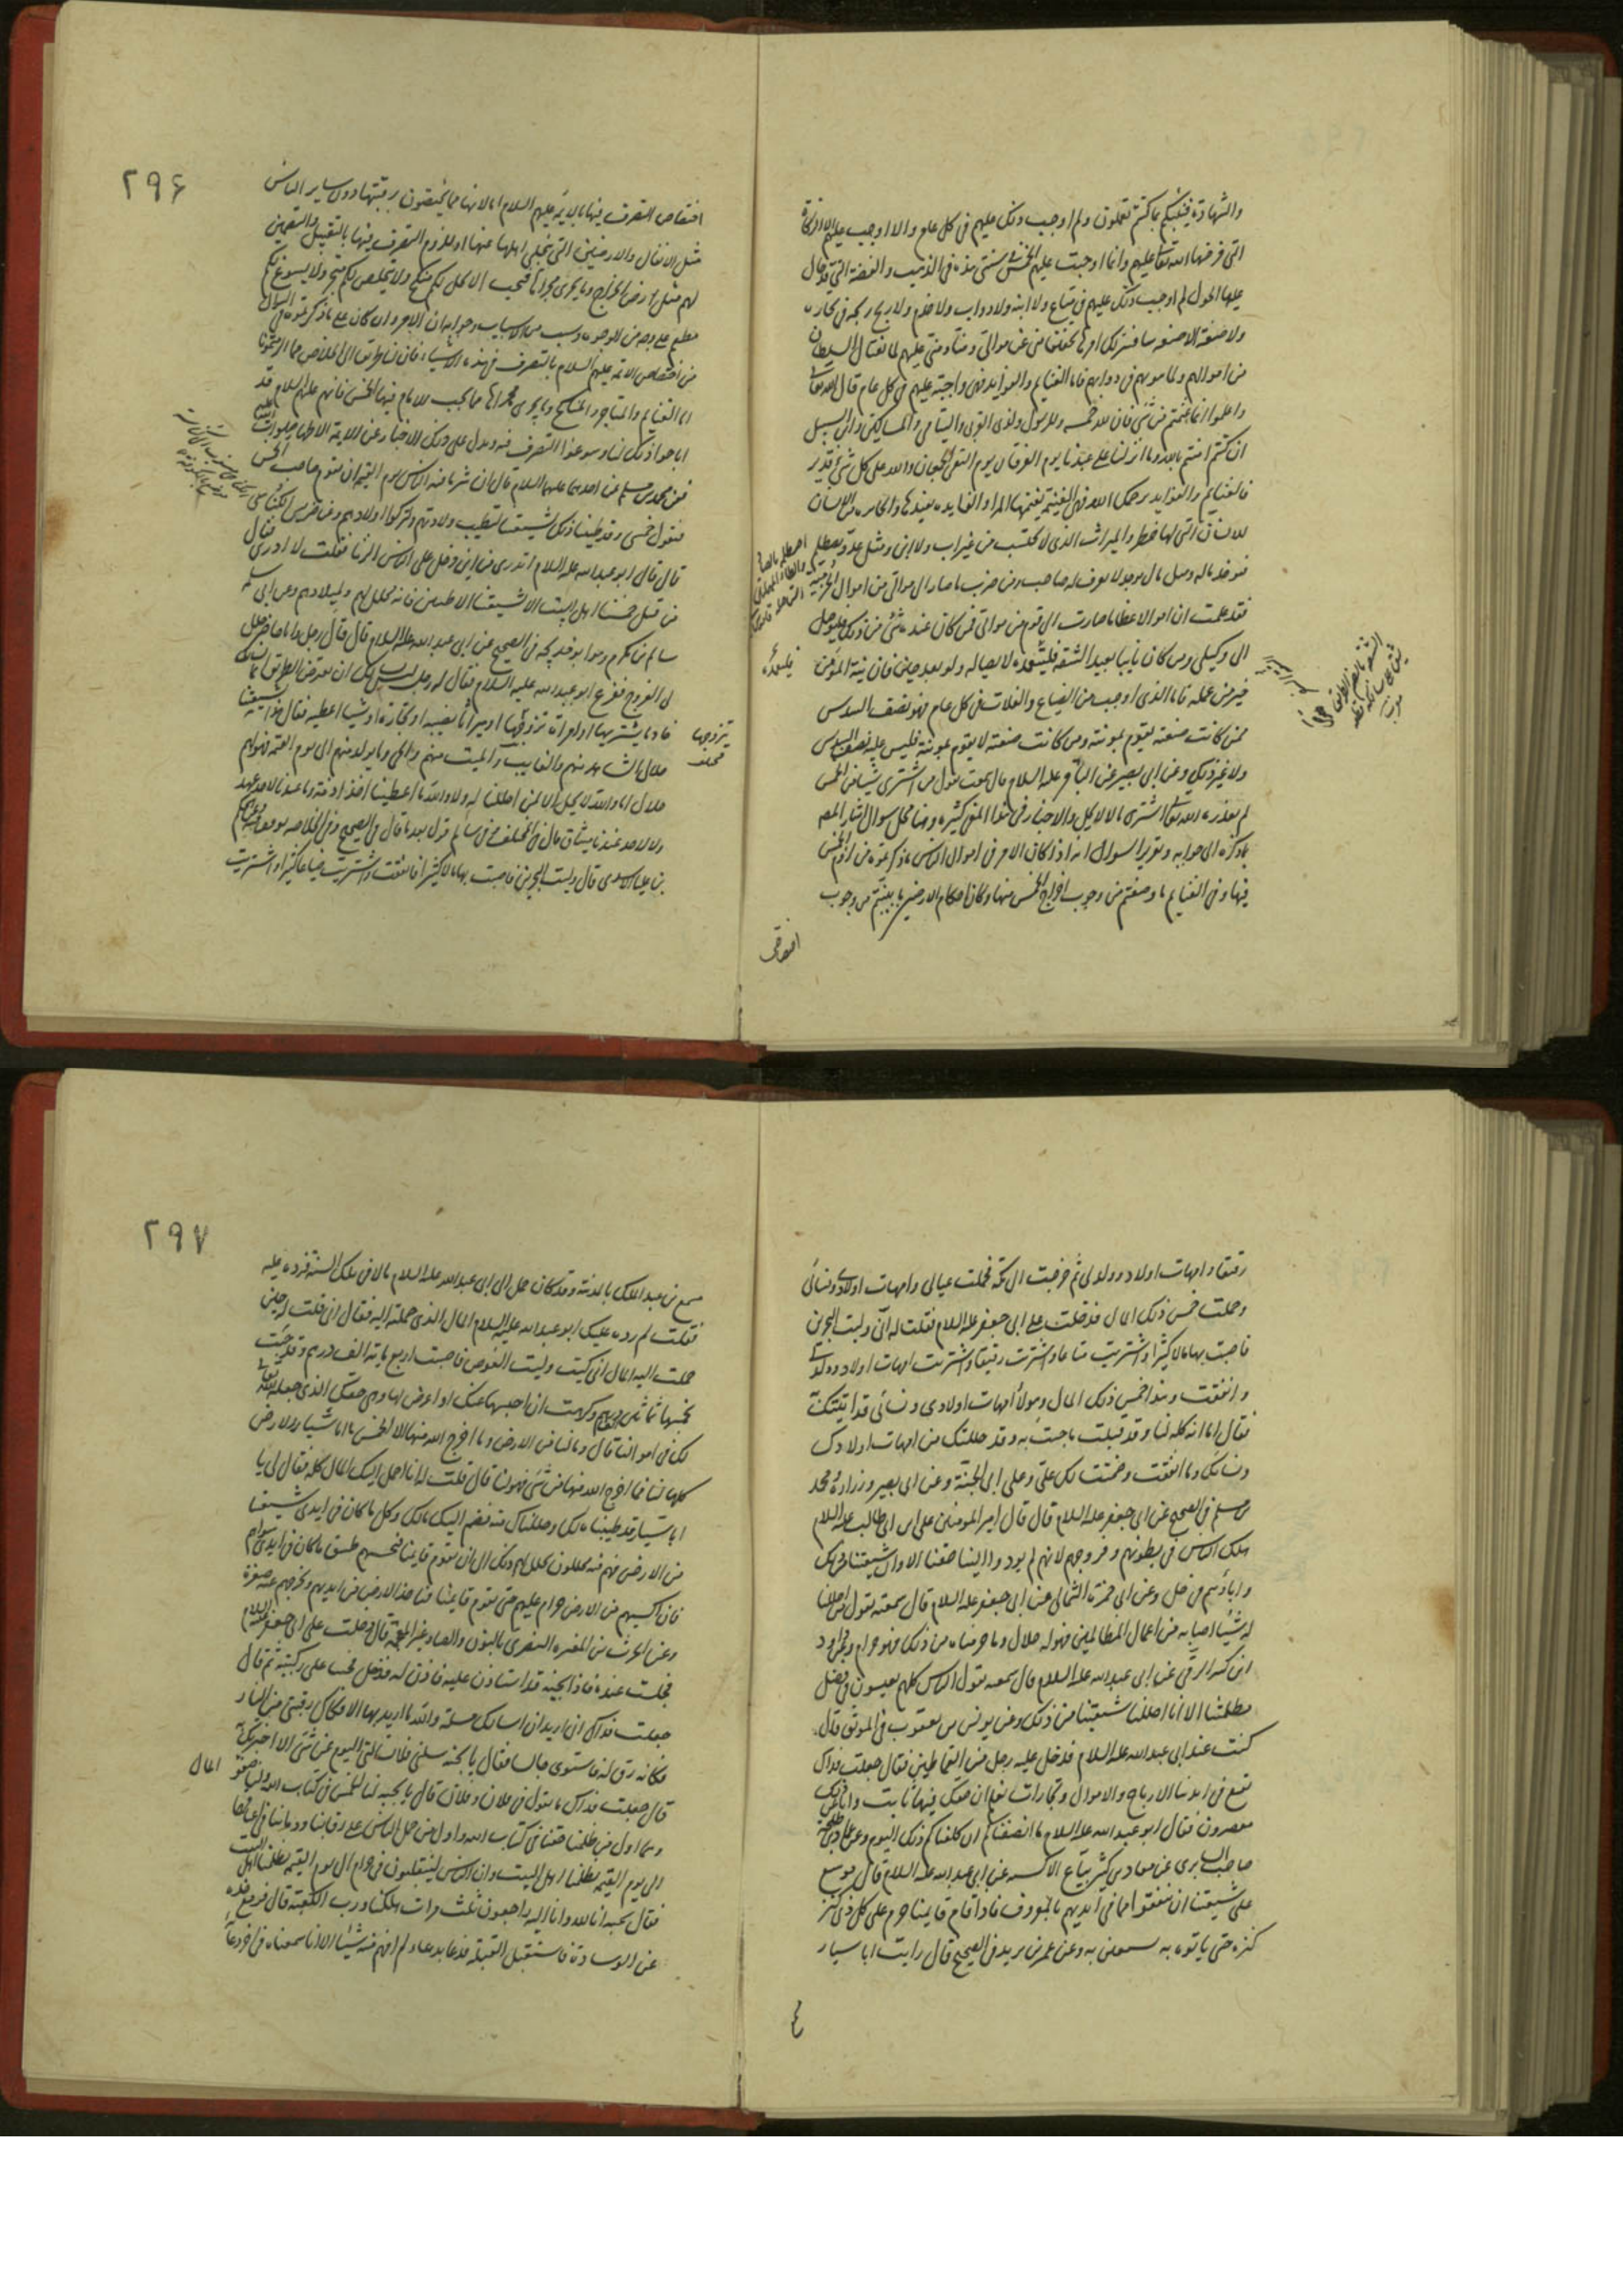 والشهادة فينبئكم بما كنتم تعملون ولم اوجب ذلك عليهم فى كل عام ولا اوجب عليهم الا الزكاة
التى فرضها الله تعالى عليهم وانما اوجبت عليهم الخمس فى سنتى هذه فى الذهب والفضة التى قد حال
عليها الحول لم اوجب ذلك عليهم فى متاع ولا آنية ولا دواب ولا خدم ولا ربح ربحه فى تجارة
ولا ضيعة الا ضيعة سأفسر لك امرها تخفيفا منى عن موالى ومنا منى عليهم لما يغتال السلطان
من اموالهم ولما ينوبهم فى ذواتهم فاما الغنايم والفوايد فهى واجبة عليهم فى كل عام قال الله تعالى
واعلموا انما غنمتم من شئ فان لله خمسه وللرسول ولذى القربى واليتامى والمساكين وابن السبيل
ان كنتم امنتم بالله وما انزلنا على عبدنا يوم الفرقان يوم التقى الجمعان والله على كل شئ قدير
فالغنايم والفوايد يرحمك الله فهى الغنيمة يغنمها المرء والفايدة يفيدها والجايزة من الانسان
للانسان التى لها خطر والميراث الذى لا يحتسب من غير اب ولا ابن ومثل عدو يصطلم
فيوخذ ماله ومثل مال يوجد لا يعرف له صاحب ومن ضرب ما صار الى موالى من اموال الخرمية
فقد علمت ان اموالا عظاما صارت الى قوم من موالى فمن كان عنده شئ من ذلك فليوصل
الى وكيلى ومن كان نايبا بعيد الشقة فليتعمد لايصاله ولو بعد حين فان نية المؤمن
خير من عمله فاما الذى اوجب من الضياع والغلات فى كل عام فهو نصف السدس
ممن كانت ضيعته تقوم بمونته ومن كانت ضيعته لا تقوم بمونته فليس عليه نصف السدس
ولا غير ذلك وعن ابى بصير عن الباقر عليه السلام قال سمعته يقول من اشترى شيئا من الخمس
لم يعذره الله تعالى اشترى ما لا يحل والاخبار فى هذا المعنى كثيرة وهنا محل سوال اشار المص
بما ذكره الى جوابه وتقرير السوال انه اذا كان الامر فى اموال الناس ما ذكرتموه من لزوم الخمس
فيها وفى الغنايم ما وصفتم من وجوب اخراج الخمس منها وكان احكام الارضين ما بينتم من وجوب
اختصاص
٢٩۶
اختصاص التصرف فيها بالائمة عليهم السلام اما لانها مما يختصون برقبتها دون ساير الناس
مثل الانفال والارضين التى ينجلى اهلها عنها او للزوم التصرف فيها بالتقبيل والتضمين
لهم مثل ارض الخراج وما يجرى مجراها فيجب ان لا يحل لكم منكح ولا يتخلص لكم متجر ولا يسوغ لكم
مطعم على وجه من الوجوه وسبب من الاسباب وجوابه ان الامر وان كان على ما ذكرتموه فى السوال
من اختصاص الائمة عليهم السلام بالتصرف فى هذه الاشياء فان لنا طريقا الى الخلاص مما الزمتمونا
اما الغنايم والمتاجر والمناكح وما يجرى مجراها مما يجب للامام فيها الخمس فانهم عليهم السلام قد
اباحوا ذلك لنا وسوغوا التصرف فيه ويدل على ذلك الاخبار عن الائمة الاطهار صلوات الله عليهم
فعن محمد بن مسلم عن احدهما عليهما السلام قال ان اشد ما فيه الناس يوم القيمة ان يقوم صاحب الخمس
فيقول خمسى وقد طيبنا ذلك لشيعتنا لتطيب ولادتهم وليزكوا اولادهم وعن ضريس الكناسى
قال قال ابو عبد الله عليه السلام اتدرى من اين دخل على الناس الزنا فقلت لا ادرى فقال
من قبل خمسنا اهل البيت الا شيعتنا الاطيبين فانه محلل لهم ولميلادهم وعن ابى سلمه
سالم بن مكرم وهو ابو خديجة فى الصحيح عن ابى عبد الله عليه السلام قال قال رجل وانا حاضر حلل
لى الفروج ففزع ابو عبد الله عليه السلام فقال له رجل ليس يسالك ان يعترض الطريق انما يسالك
خادما يشتريها او امراة يتزوجها او ميراثا يصيبه او تجارة او شيئا اعطيه فقال هذا لشيعتنا
حلال الشاهد منهم والغايب والميت منهم والحى وما يولد منهم الى يوم القيمة فهو لهم
حلال اما والله لا يحل الا لمن احللنا له ولا والله ما اعطينا احدا ذمة وما عندنا لاحد عهد
ولا لاحد عندنا ميثاق قال فى المختلف وفى سالم قول بعد ما قال فى الصحيح وفى الخلاصه توقف وعن الحكم
بن علباء الاسدى قال وليت البحرين فاصبت بها مالا كثيرا فانفقت واشتريت ضياعا كثيرا واشتريت
رقيقا وامهات اولاد وولد لى ثم خرجت الى مكة فحملت عيالى وامهات اولادى ونسائى
وحملت خمس ذلك المال فدخلت على ابى جعفر عليه السلام فقلت له انى وليت البحرين
فاصبت بها مالا كثيرا واشتريت متاعا واشتريت رقيقا واشتريت امهات اولاد وولد لى
وانفقت وهذا خمس ذلك المال وهولاء امهات اولادى ونسائى قد اتيتك به
فقال اما انه كله لنا وقد قبلت ما جئت به وقد حللتك من امهات اولادك
ونسائك وما انفقت وضمنت لك على وعلى ابى الجنة وعن ابى بصير وزرارة ومحمد
بن مسلم فى الصحيح عن ابى جعفر عليه السلام قال قال امير المومنين على بن ابى طالب عليه السلام
هلك الناس فى بطونهم وفروجهم لانهم لم يودوا الينا حقنا الا وان شيعتنا من ذلك
وابائهم فى حل وعن ابى حمزة الثمالى عن ابى جعفر عليه السلام قال سمعته يقول من احللنا
له شيئا اصابه من اعمال الظالمين فهو له حلال وما حرمناه من ذلك فهو حرام وعن داود
ابن كثير الرقى عن ابى عبد الله عليه السلام قال سمعته يقول الناس كلهم يعيشون فى فضل
مظلمتنا الا انا احللنا شيعتنا من ذلك وعن يونس بن يعقوب فى الموثق قال
كنت عند ابى عبد الله عليه السلام فدخل عليه رجل من القماطين فقال جعلت فداك
تقع فى ايدينا الارباح والاموال وتجارات نعلم ان حقك فيها ثابت وانا عن ذلك
مقصرون فقال ابو عبد الله عليه السلام ما انصفناكم ان كلفناكم ذلك اليوم وعن
صاحب السابرى عن معاذ بن كثير بياع الاكسيه عن ابى عبد الله عليه السلام قال موسع
على شيعتنا ان ينفقوا مما فى ايديهم بالمعروف فاذا قام قايمنا حرم على كل ذى كنز
كنزه حتى ياتوه به يستعين به وعن عمر بن يزيد فى الصحيح قال رايت ابا سيار
٢٩٧
مسمع بن عبد الملك بالمدينة وقد كان حمل الى ابى عبد الله عليه السلام مالا فى تلك السنة فرده عليه
فقلت لم رده عليك ابو عبد الله عليه السلام المال الذى حملته اليه فقال انى قلت له حين
حملت اليه المال انى كنت وليت الغوص فاصبت اربع ماية الف درهم وقد جئت
بخمسها ثمانين الف درهم وكرهت ان احبسها عنك او اعرض لها وهى حقك الذى جعله الله تعالى
لك فى اموالنا فقال وما لنا من الارض وما اخرج الله منها الا الخمس يا ابا سيار الارض
كلها لنا فما اخرج الله منها من شئ فهو لنا قال قلت له انا احمل اليك المال كله فقال لى يا
ابا سيار قد طيبناه لك وحللناك منه فضم اليك مالك وكل ما كان فى ايدى شيعتنا
من الارض فهم فيه محللون يحلل لهم ذلك الى ان يقوم قايمنا فيجبيهم طسق ما كان فى ايدى سواهم
فان كسبهم من الارض حرام عليهم حتى يقوم قايمنا فياخذ الارض من ايديهم ويخرجهم عنها صغرة
وعن الحرث بن المغيره النصرى بالنون والصاد غير المعجمة قال دخلت على ابى جعفر عليه السلام
فجلست عنده فاذا نجيه قد استاذن عليه فاذن له فدخل فجثا على ركبتيه ثم قال
جعلت فداك انى اريد ان اسالك عن مسئلة والله ما اريد بها الا فكاك رقبتى من النار
فكانه رق له فاستوى جالسا فقال يا نجيه سلنى فلا تسالنى اليوم عن شئ الا اخبرتك به
قال جعلت فداك ما تقول فى فلان وفلان قال يا نجيه لنا الخمس فى كتاب الله ولنا صفو
المال
وهما اول من ظلمنا حقنا فى كتاب الله واول من حمل الناس على رقابنا ودماؤنا فى اعناقهما
الى يوم القيمه بظلمنا اهل البيت وان الناس ليتقلبون فى حرام الى يوم القيمة بظلمنا اهل البيت
فقال نجيه انا لله وانا اليه راجعون ثلث مرات هلكنا ورب الكعبة قال فرفع فخذه
عن الوسادة فاستقبل القبلة فدعا بدعاء لم افهم منه شيئا الا انا سمعناه فى اخر دعائه